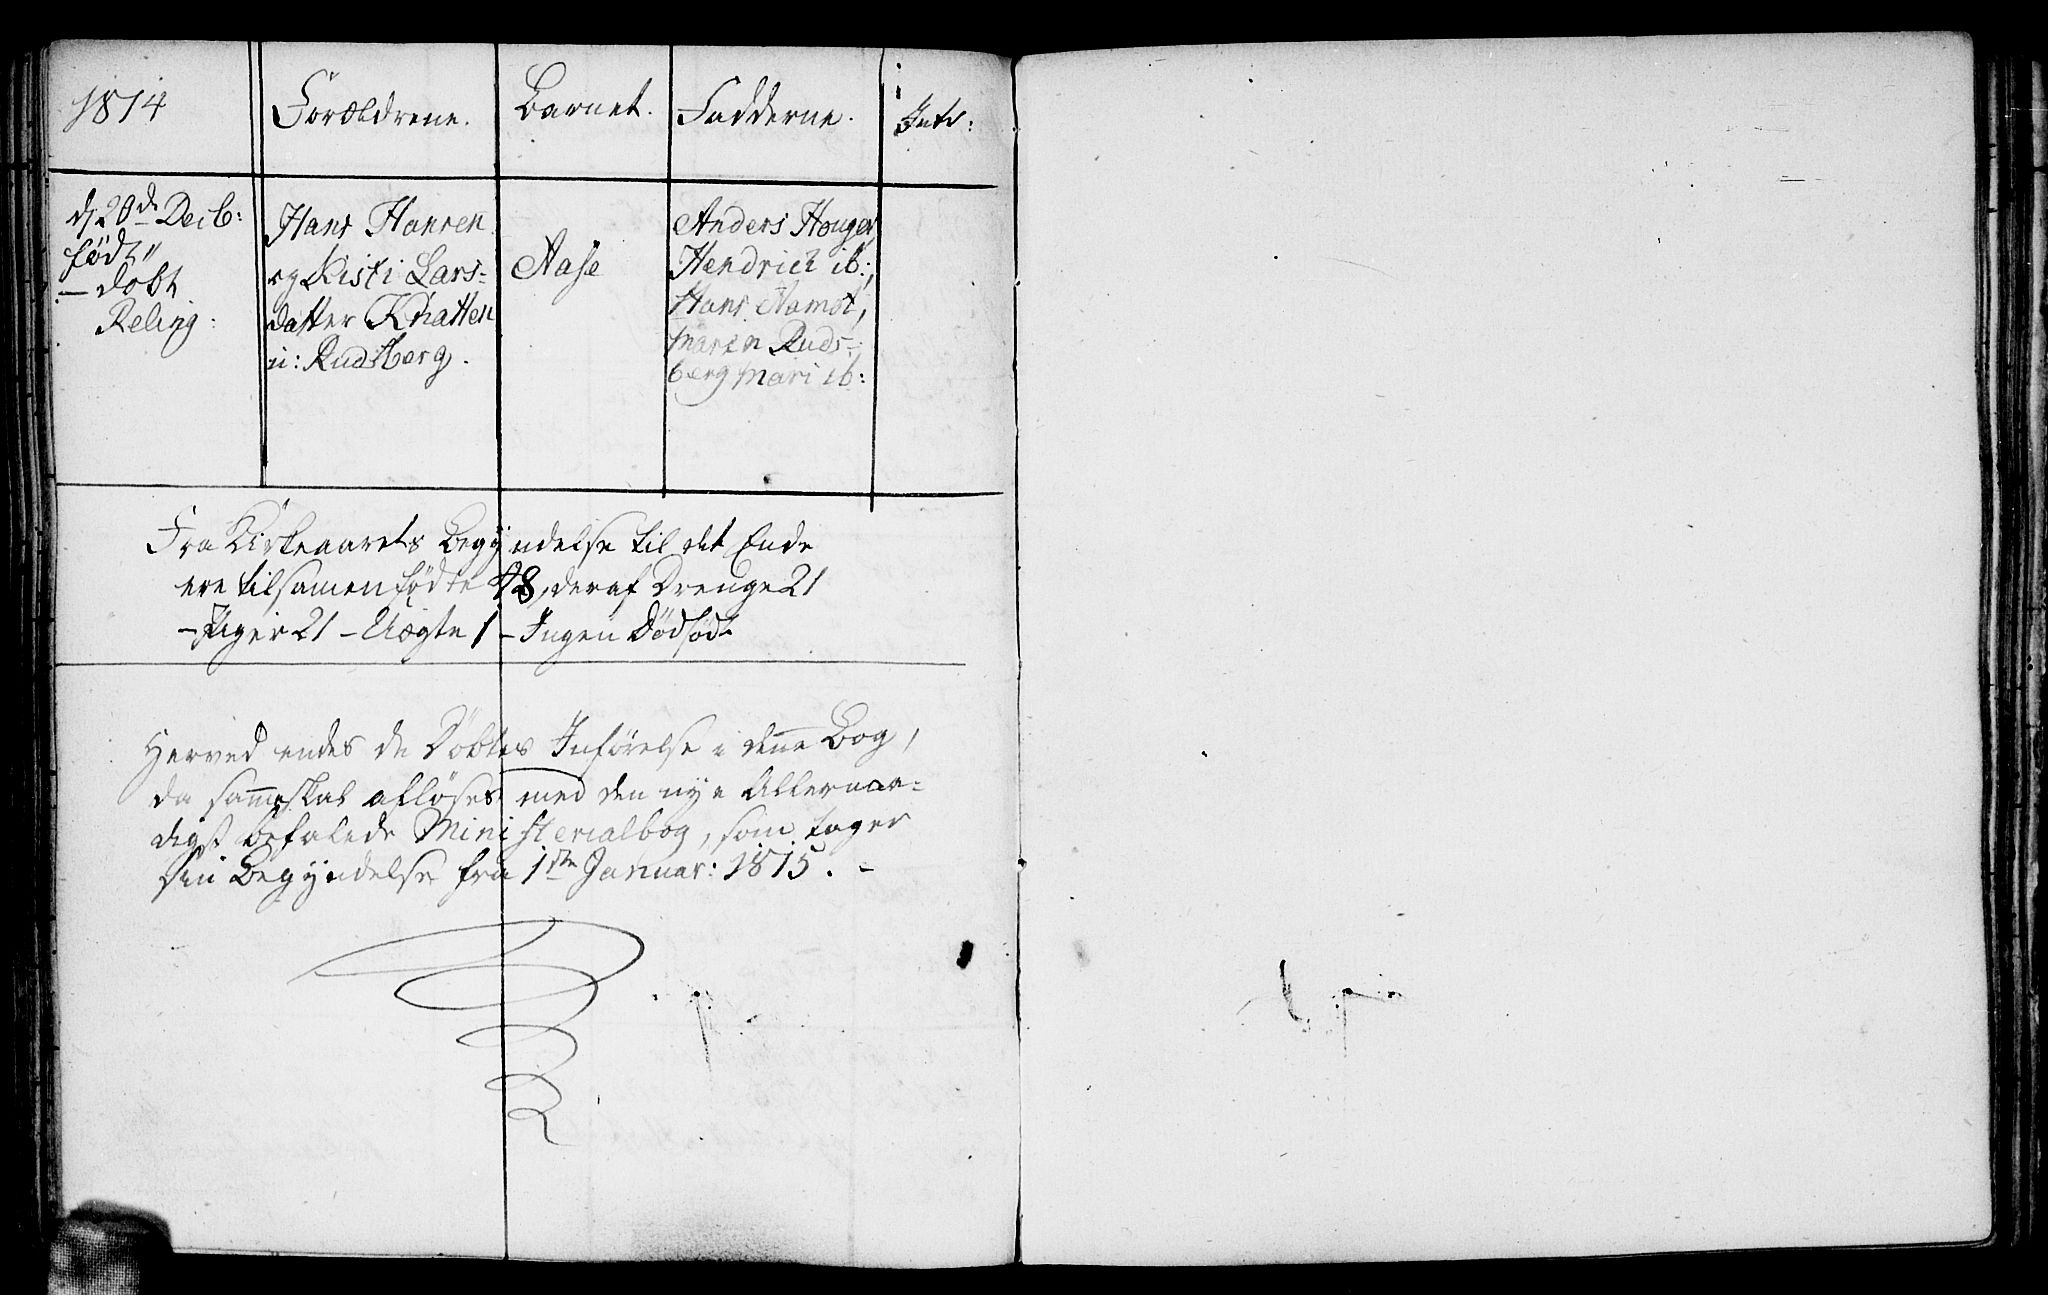 1814
Forældrene.
Barnet.
Fadderne.
Intr:
d 20de Decb:
født
— døbt
Reling:
Hans Hansen
og Kisti Lars-
datter Knatten
u: Rudsberg.
Aase
Anders Houger,
Hendrich ib:,
Hans Hamst,
Maren Ruds-
berg Mari ib:
Fra Kirkeaarets Begyndelse til det Ende
ere tilsamen fødte 48, deraf Drenge 21
— Piger 21 — Uægte 1 — Ingen Dødfødt
Herved endes de Døbtes Indførelse i denne Bog,
da samme skal afløses med den nye Allernaa-
digst befalede Ministerialbog, som tager
sin Begyndelse fra 1ste Januar: 1815. -